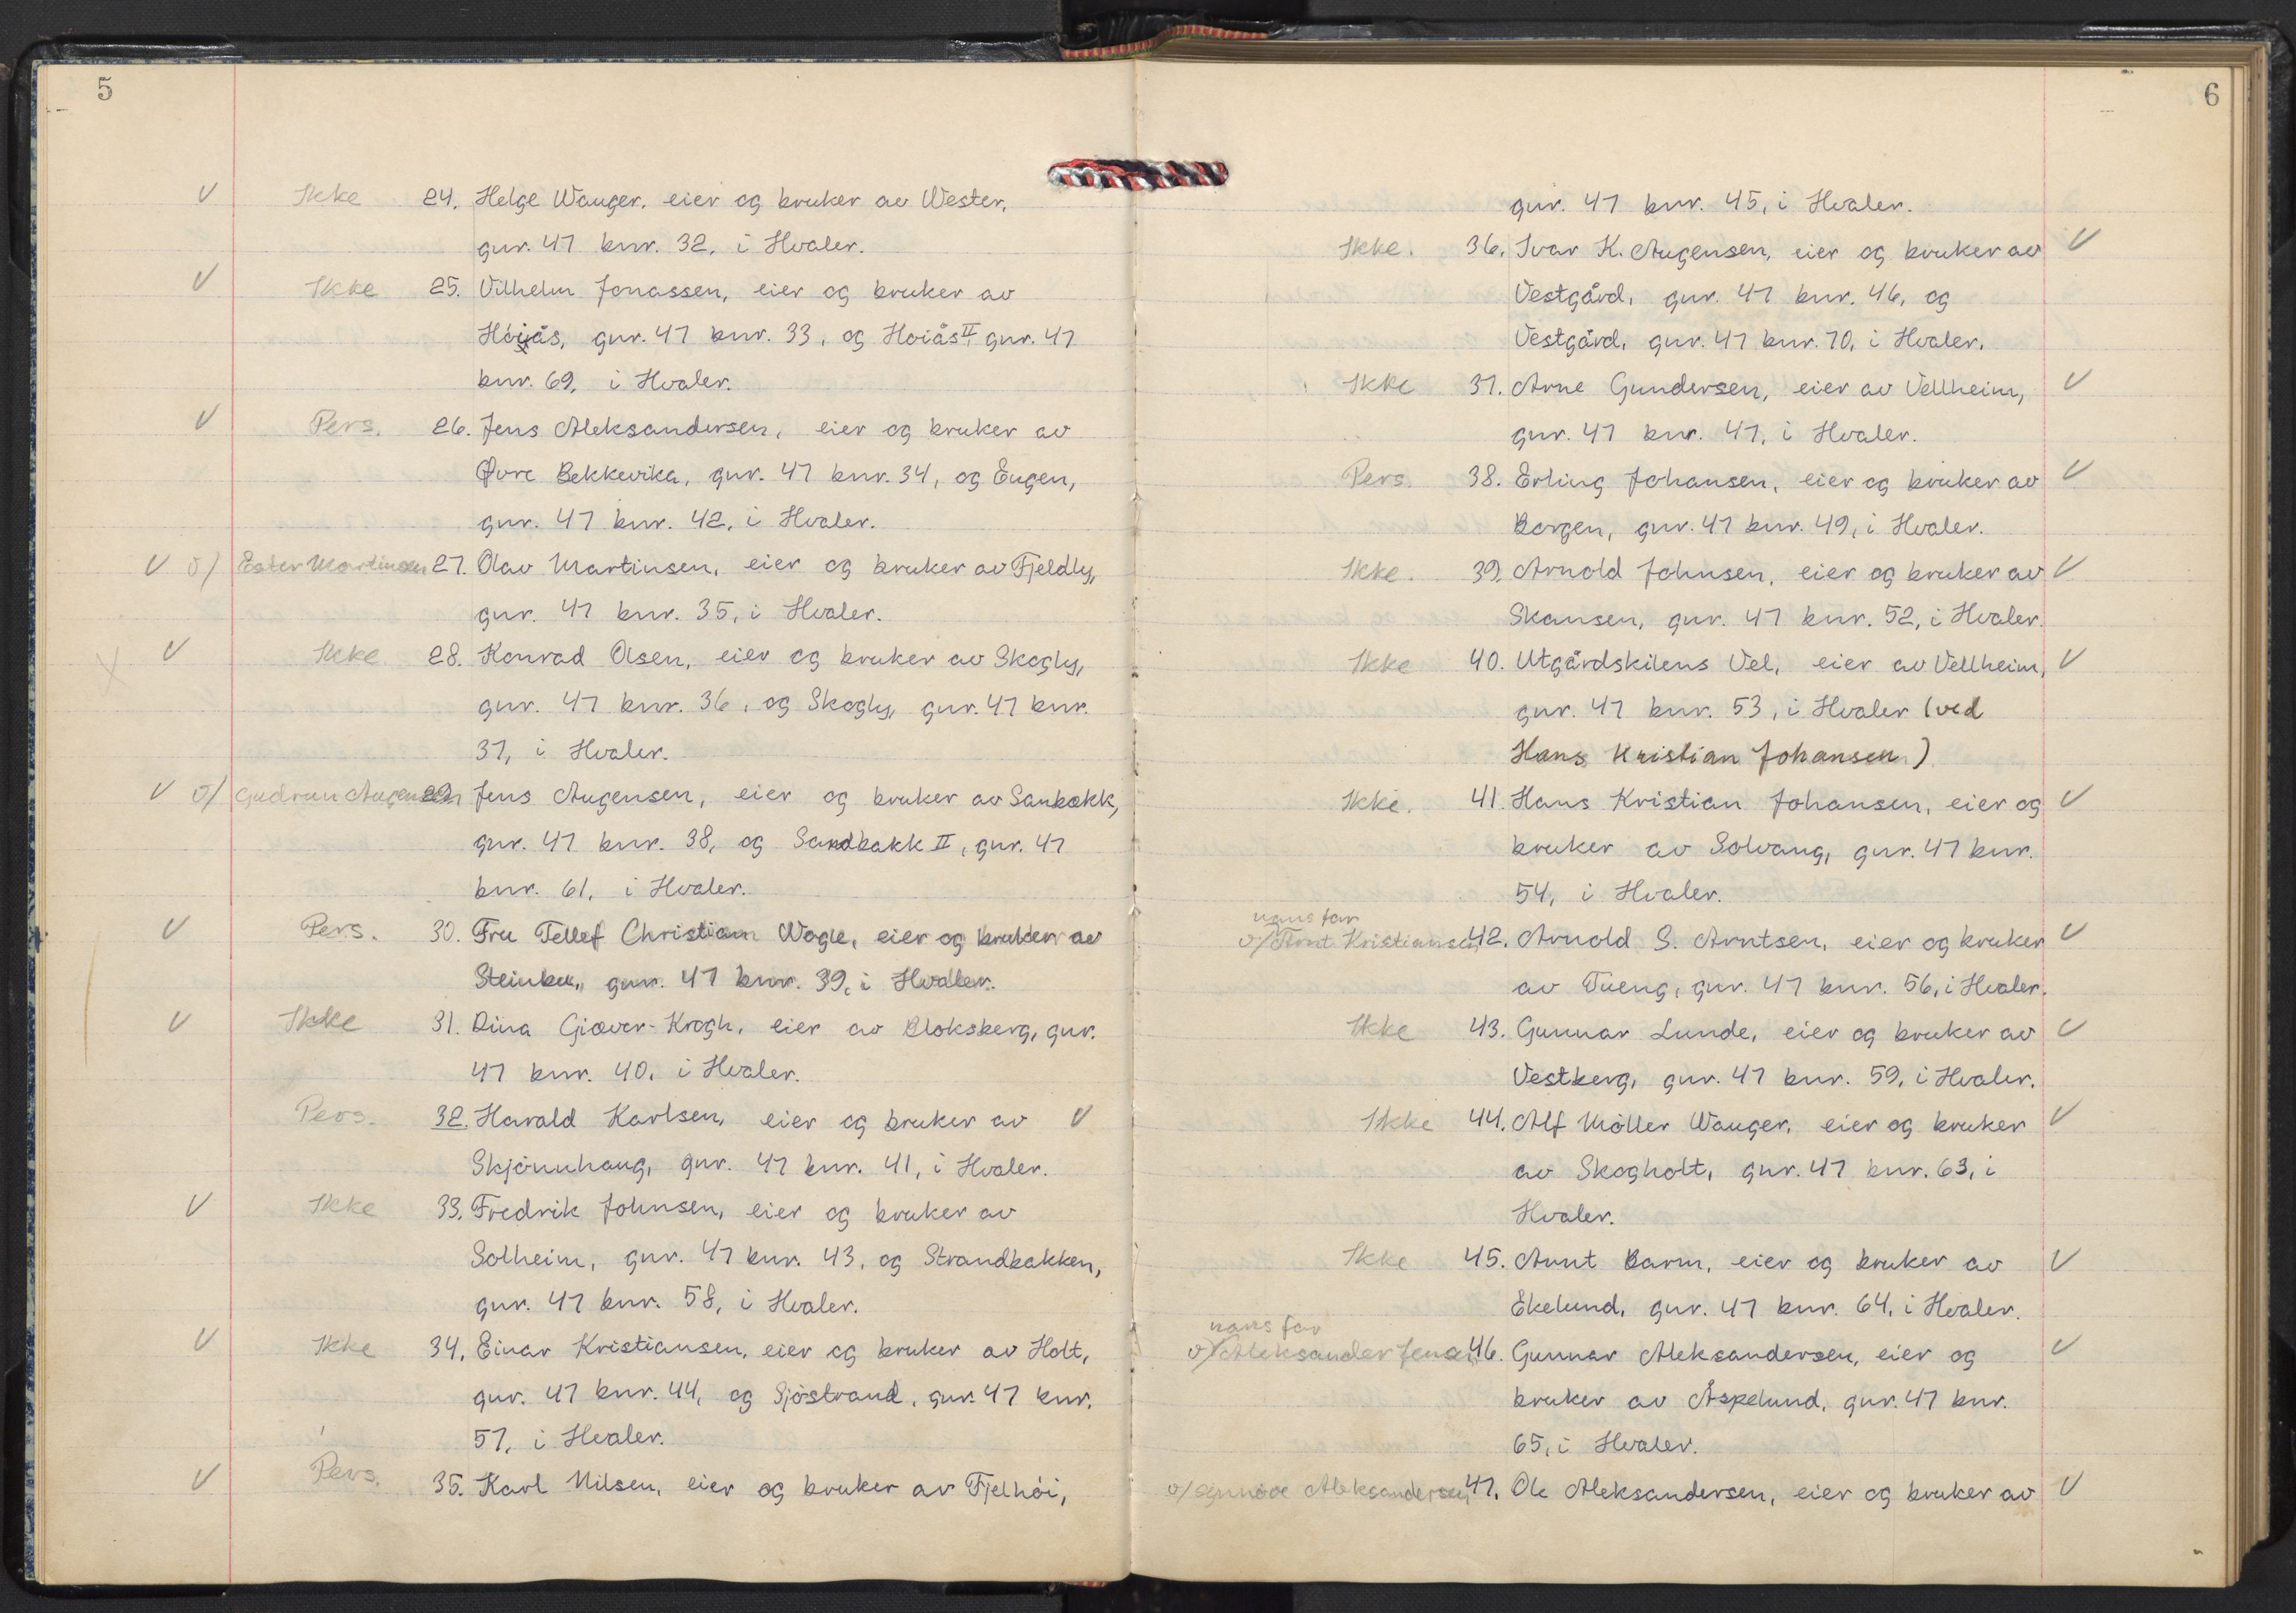 5
V Ikke 24. Helge Wauger, eier og bruker av Wester,
gnr. 47 bnr. 32, i Hvaler.
V Ikke 25. Vilhelm Jonassen, eier og bruker av
Höiås, gnr. 47 bnr. 33, og Hoiås II gnr. 47
bnr. 69, i Hvaler.
V Pers. 26. Jens Aleksandersen, eier og bruker av
Øvre Bekkevika, gnr. 47 bnr. 34, og Eugen,
gnr. 47 bnr. 42, i Hvaler.
V v/ Ester Martinsen 27. Olav Martinsen, eier og bruker av Fjeldly,
gnr. 47 bnr. 35, i Hvaler.
V Ikke 28. Konrad Olsen, eier og bruker av Skogly,
gnr. 47 bnr. 36, og Skogly, gnr. 47 bnr.
37, i Hvaler.
V v/ Gudrun Augensen 29. Jens Augensen, eier og bruker av Sanbakk,
gnr. 47 bnr. 38, og Sandbakk II, gnr. 47
bnr. 61, i Hvaler.
V Pers. 30. Fru Tellef Christian Wogle, eier og bruker av
Steinbu, gnr. 47 bnr. 39, i Hvaler.
V Ikke 31. Dina Giæver-Krogh, eier av Bloksberg, gnr.
47 bnr. 40, i Hvaler.
Pers. 32. Harald Karlsen, eier og bruker av V
Skjönnhaug, gnr. 47 bnr. 41, i Hvaler.
V Ikke 33. Fredrik Johnsen, eier og bruker av
Solheim, gnr. 47 bnr. 43, og Strandbakken,
gnr. 47 bnr. 58, i Hvaler.
V Ikke 34. Einar Kristiansen, eier og bruker av Holt,
gnr. 47 bnr. 44, og Sjöstrand, gnr. 47 bnr.
57, i Hvaler.
V Pers. 35. Karl Nilsen, eier og bruker av Fjelhöi,
6
gnr. 47 bnr. 45, i Hvaler.
Ikke. 36. Ivar K. Augensen, eier og bruker av V
Vestgård, gnr. 47 bnr. 46, og
Vestgård, gnr. 47 bnr. 70, i Hvaler.
Ikke 37. Arne Gundersen, eier av Vellheim, V
gnr. 47 bnr. 47, i Hvaler.
Pers. 38. Erling Johansen, eier og bruker av V
Borgen, gnr. 47 bnr. 49, i Hvaler.
Ikke. 39. Arnold Johnsen, eier og bruker av V
Skansen, gnr. 47 bnr. 52, i Hvaler.
Ikke 40. Utgårdskilens Vel, eier av Vellheim, V
gnr. 47 bnr. 53, i Hvaler (ved
Hans Kristian Johansen)
Ikke. 41. Hans Kristian Johansen, eier og V
bruker av Solvang, gnr. 47 bnr.
54, i Hvaler.
hans far
v/ Arnt Kristiansen 42. Arnold S. Arntsen, eier og bruker V
av Tueng, gnr. 47 bnr. 56, i Hvaler.
Ikke 43. Gunnar Lunde, eier og bruker av V
Vestberg, gnr. 47 bnr. 59, i Hvaler.
Ikke 44. Alf Möller Wauger, eier og bruker V
av Skogholt, gnr. 47 bnr. 63, i
Hvaler.
Ikke 45. Arnt Barm, eier og bruker av V
Ekelund, gnr. 47 bnr. 64, i Hvaler.
hans far
v/ Aleksander Jensen 46. Gunnar Aleksandersen, eier og V
bruker av Åspelund, gnr. 47 bnr.
65, i Hvaler.
v/ Synnöve Aleksandersen 47. Ole Aleksandersen, eier og bruker av V